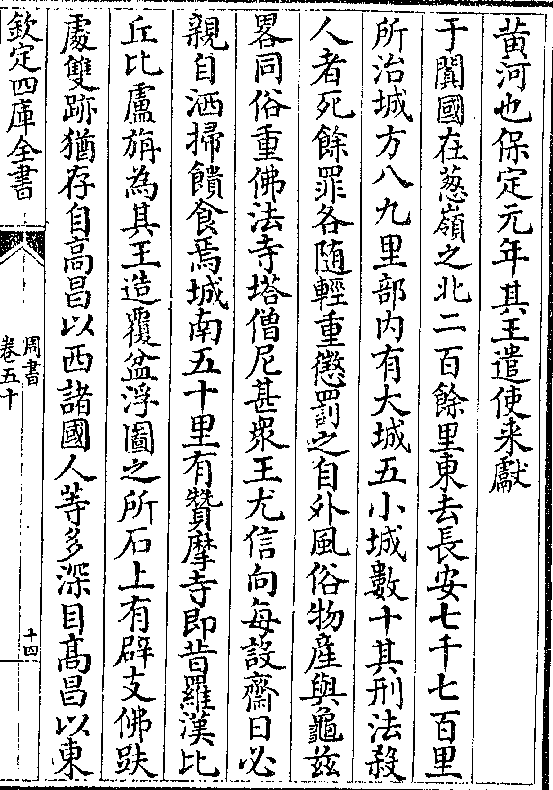 黄河也保定元年其王遣使来獻
于闐國在葱嶺之北二百餘里東去長安七千七百里
所治城方八九里部内有大城五小城數十其刑法殺
人者死餘罪各随輕重懲罰之自外風俗物産與龜兹
畧同俗重佛法寺塔僧尼甚衆王尤信向每設齋日必
親自洒掃饋食焉城南五十里有贊摩寺即昔羅漢比
丘比盧旃為其王造覆盆浮圖之所石上有辟支佛趺
處雙跡猶存自高昌以西諸國人等多深目高昌以東
欽定四庫全書
周書
卷五十
十四